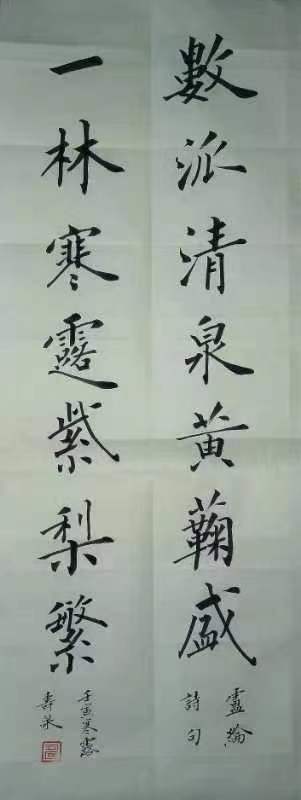 數派清泉黃蘜盛
盧綸
詩句
一林寒露紫梨繁
壬寅寒
壽